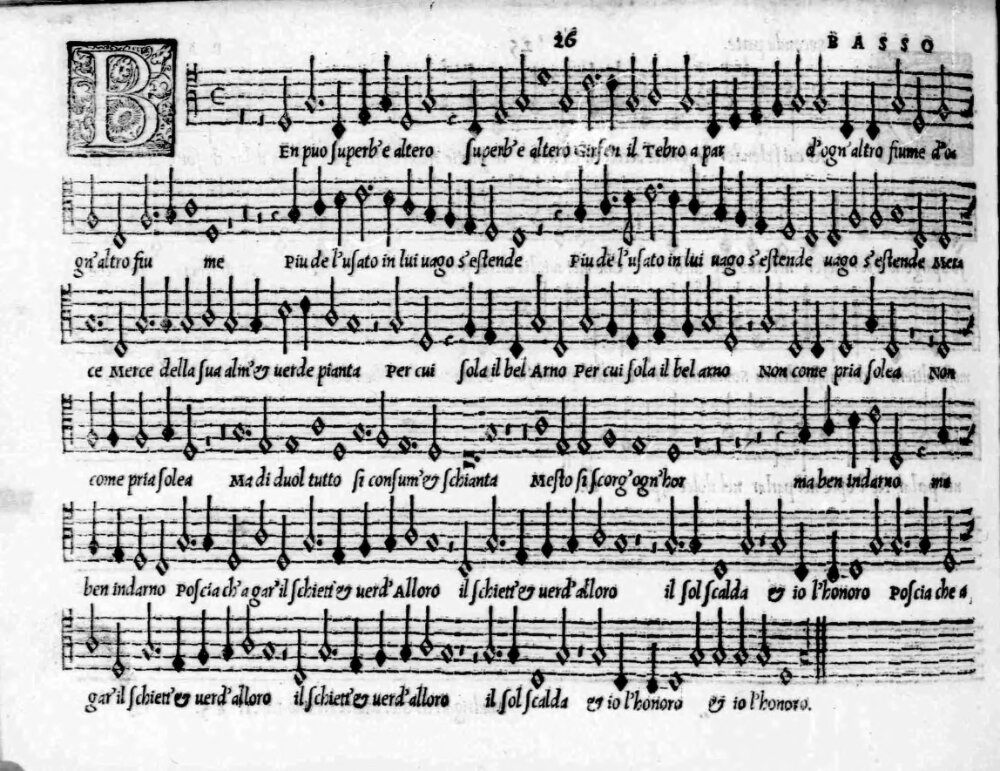 26
BASSO
BEn puo superb'e altero superb'e altero Girsen il Tebro a par d'ogn'altro fiume d'o
gn'altro fiu me Piu de l'usato in lui uago s'estende Piu de l'usato in lui uago s'estende uago s'estende Mer
ce Merce della sua alm'& uerde pianta Per cui sola il bel Arno Per cui sola il bel arno Non come pria solea Non
come pria solea Ma di duol tutto si consum'& schianta Mesto si scorg'ogn'hor ma ben indarno ma
ben indarno Poscia ch'a gar'il schiett'& uerd'Alloro il schiett'& uerd'alloro il sol scalda & io l'honoro Poscia che a
gar'il schiett'& uerd'alloro il schiett'& uerd'alloro il sol scalda & io l'honoro & io l'honoro.